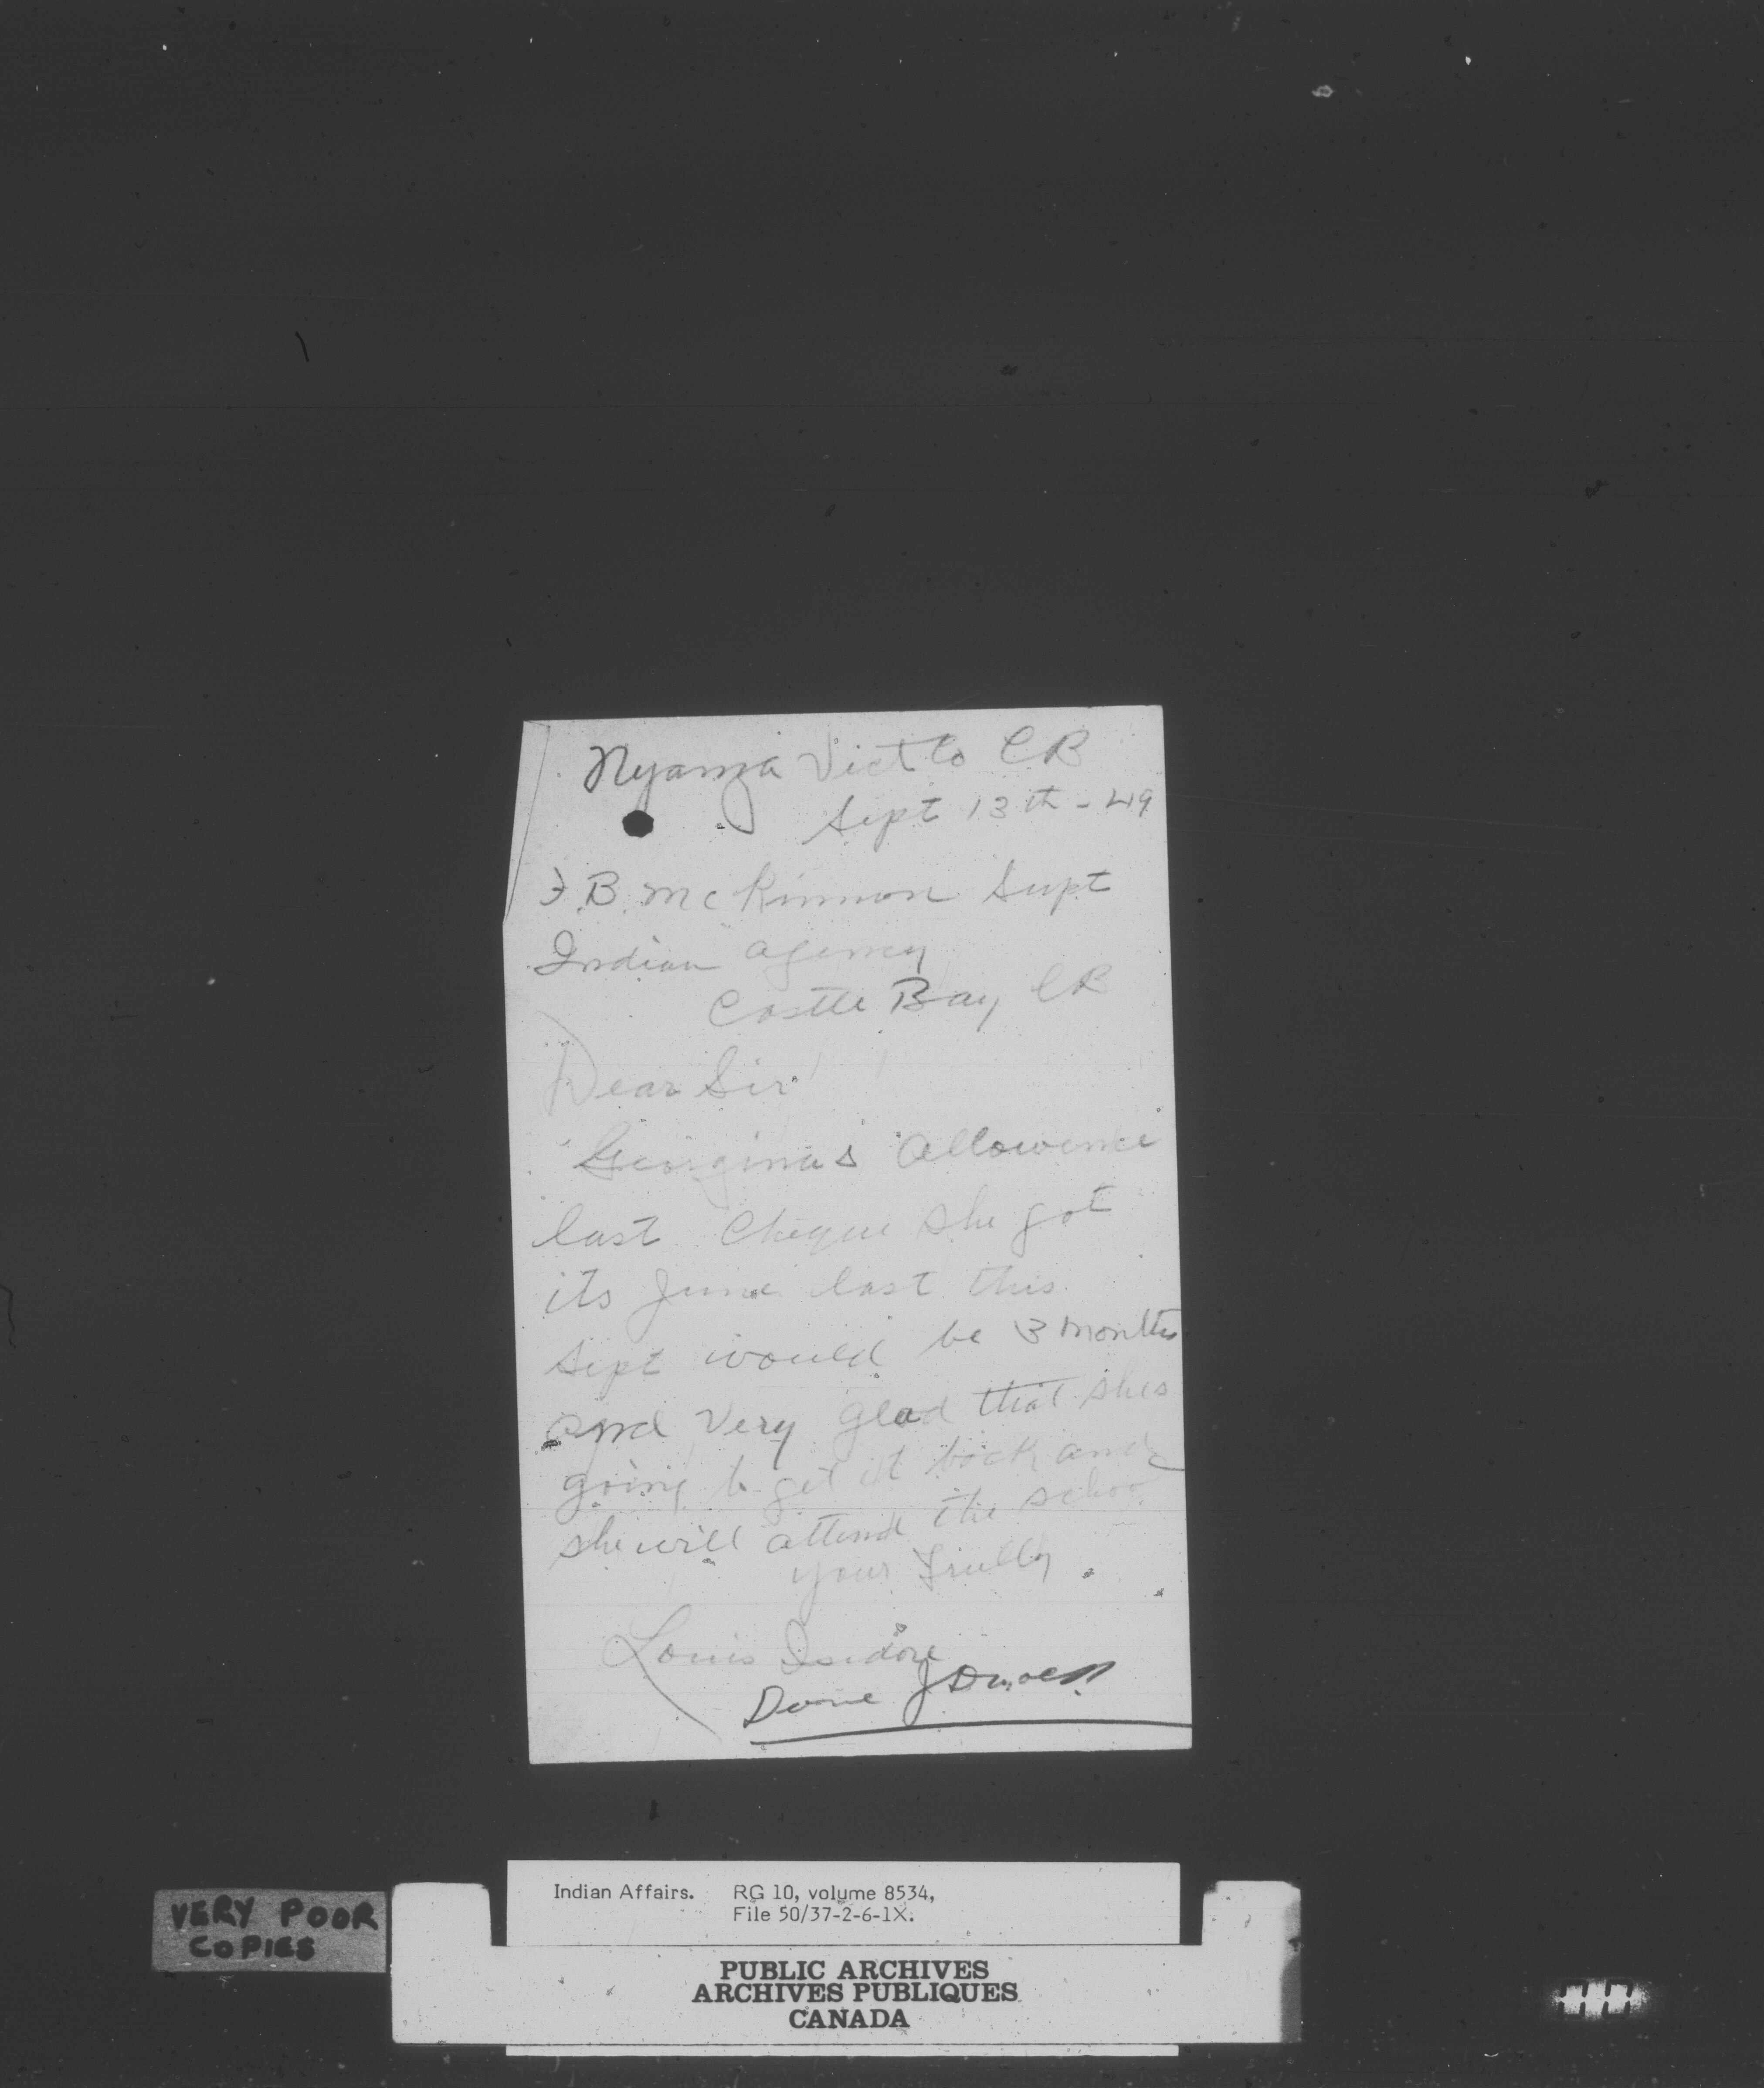 Nyanza Vict Co CB
Sept 13th - 49
F.B. McKinnon Supt
Indian agency
Castle Bay CB
Dear Sir
Georgina's allowence
last Cheque she got
its June last this
sept would be 3 months
and Very glad that shes
going to get it back and
she will attend the school
your trully
Louis Isidore
Done
VERY POOR
COPIES
Indian Affairs. RG 10, volume 8534,
File 50/37-2-6-1X.
PUBLIC ARCHIVES
ARCHIVES PUBLIQUES
CANADA